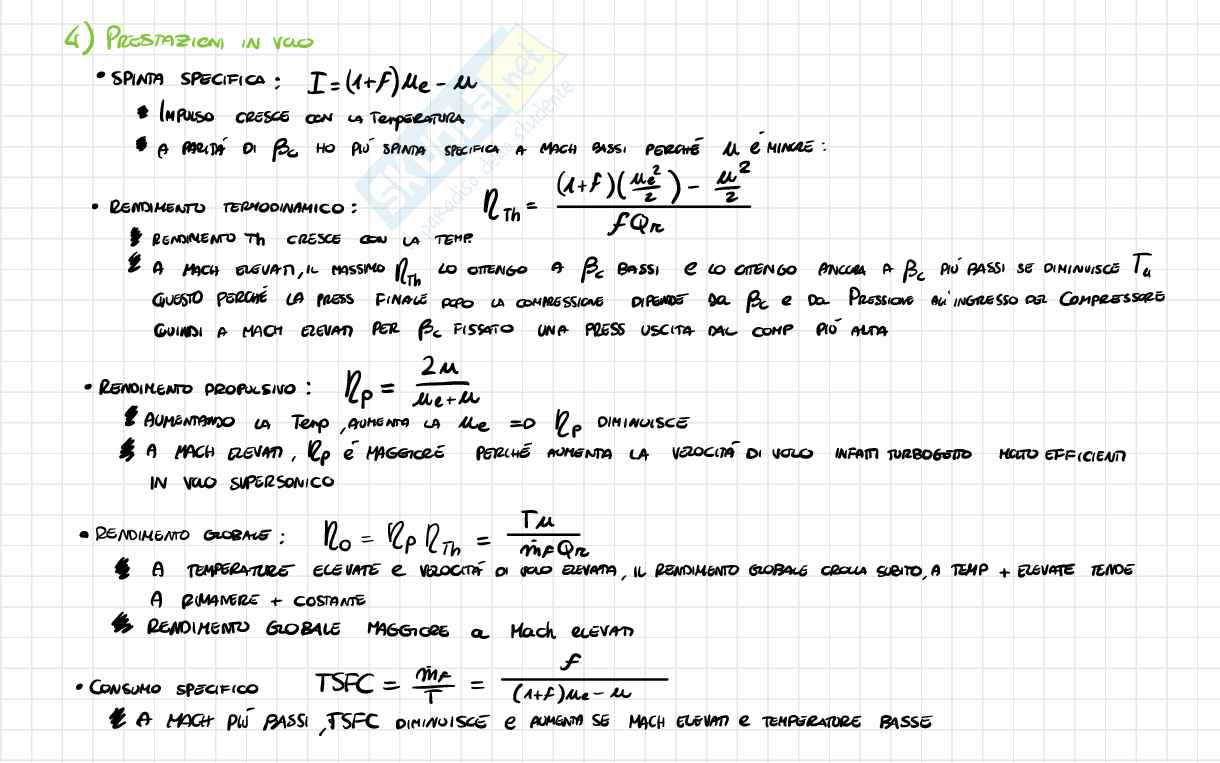 4) PRESTAZIONI IN VOLO
• SPINTA SPECIFICA : I = (1+f) ue - u
• IMPULSO CRESCE CON LA TEMPERATURA
• A PARITÀ DI βc HO PIÙ SPINTA SPECIFICA A MACH BASSI PERCHÉ u É MINORE :
• RENDIMENTO TERMODINAMICO : ηTh = ((1+f)(ue²/2) - u²/2) / (f QR)
• RENDIMENTO Th CRESCE CON LA TEMP.
• A MACH ELEVATI, IL MASSIMO ηTh LO OTTENGO A βc BASSI E LO OTTENGO ANCORA A βc PIÙ BASSI SE DIMINUISCE T4
QUESTO PERCHÉ LA PRESS FINALE DOPO LA COMPRESSIONE DIPENDE DA βc E DA PRESSIONE ALL'INGRESSO DEL COMPRESSORE
QUINDI A MACH ELEVATI PER βc FISSATO UNA PRESS USCITA DAL COMP PIÙ ALTA
• RENDIMENTO PROPULSIVO : ηP = 2u / (ue + u)
• AUMENTANDO LA TEMP, AUMENTA LA ue => ηP DIMINUISCE
• A MACH ELEVATI, ηP É MAGGIORE PERCHÉ AUMENTA LA VELOCITÀ DI VOLO INFATTI TURBOGETTO MOLTO EFFICIENTI
IN VOLO SUPERSONICO
• RENDIMENTO GLOBALE : ηO = ηP ηTh = Tu / (ṁF QR)
• A TEMPERATURE ELEVATE E VELOCITÀ DI VOLO ELEVATA, IL RENDIMENTO GLOBALE CROLLA SUBITO, A TEMP + ELEVATE TENDE
A RIMANERE + COSTANTE
• RENDIMENTO GLOBALE MAGGIORE a Mach ELEVATI
• CONSUMO SPECIFICO TSFC = ṁF / T = f / ((1+f) ue - u)
• A MACH PIÙ BASSI, TSFC DIMINUISCE E AUMENTA SE MACH ELEVATI E TEMPERATURE BASSE
SKUOLA.net
paradiso dello studente